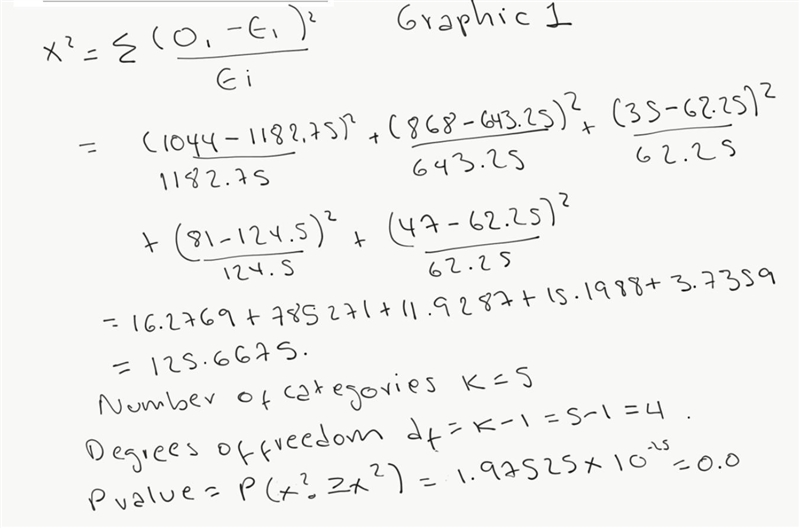 Graphic 1
x² = Σ (O, - E,)² / Ei
= (1044 - 1182.75)² / 1182.75 + (868 - 643.25)² / 643.25 + (35 - 62.25)² / 62.25
+ (81 - 124.5)² / 124.5 + (47 - 62.25)² / 62.25
= 16.2769 + 785271 + 11.9287 + 15.1988 + 3.7359
= 125.6675.
Number of categories K = 5
Degrees of freedom df = K - 1 = 5 - 1 = 4 .
P value = P(x². 2x²) = 1.97525 x 10⁻²⁵ = 0.0